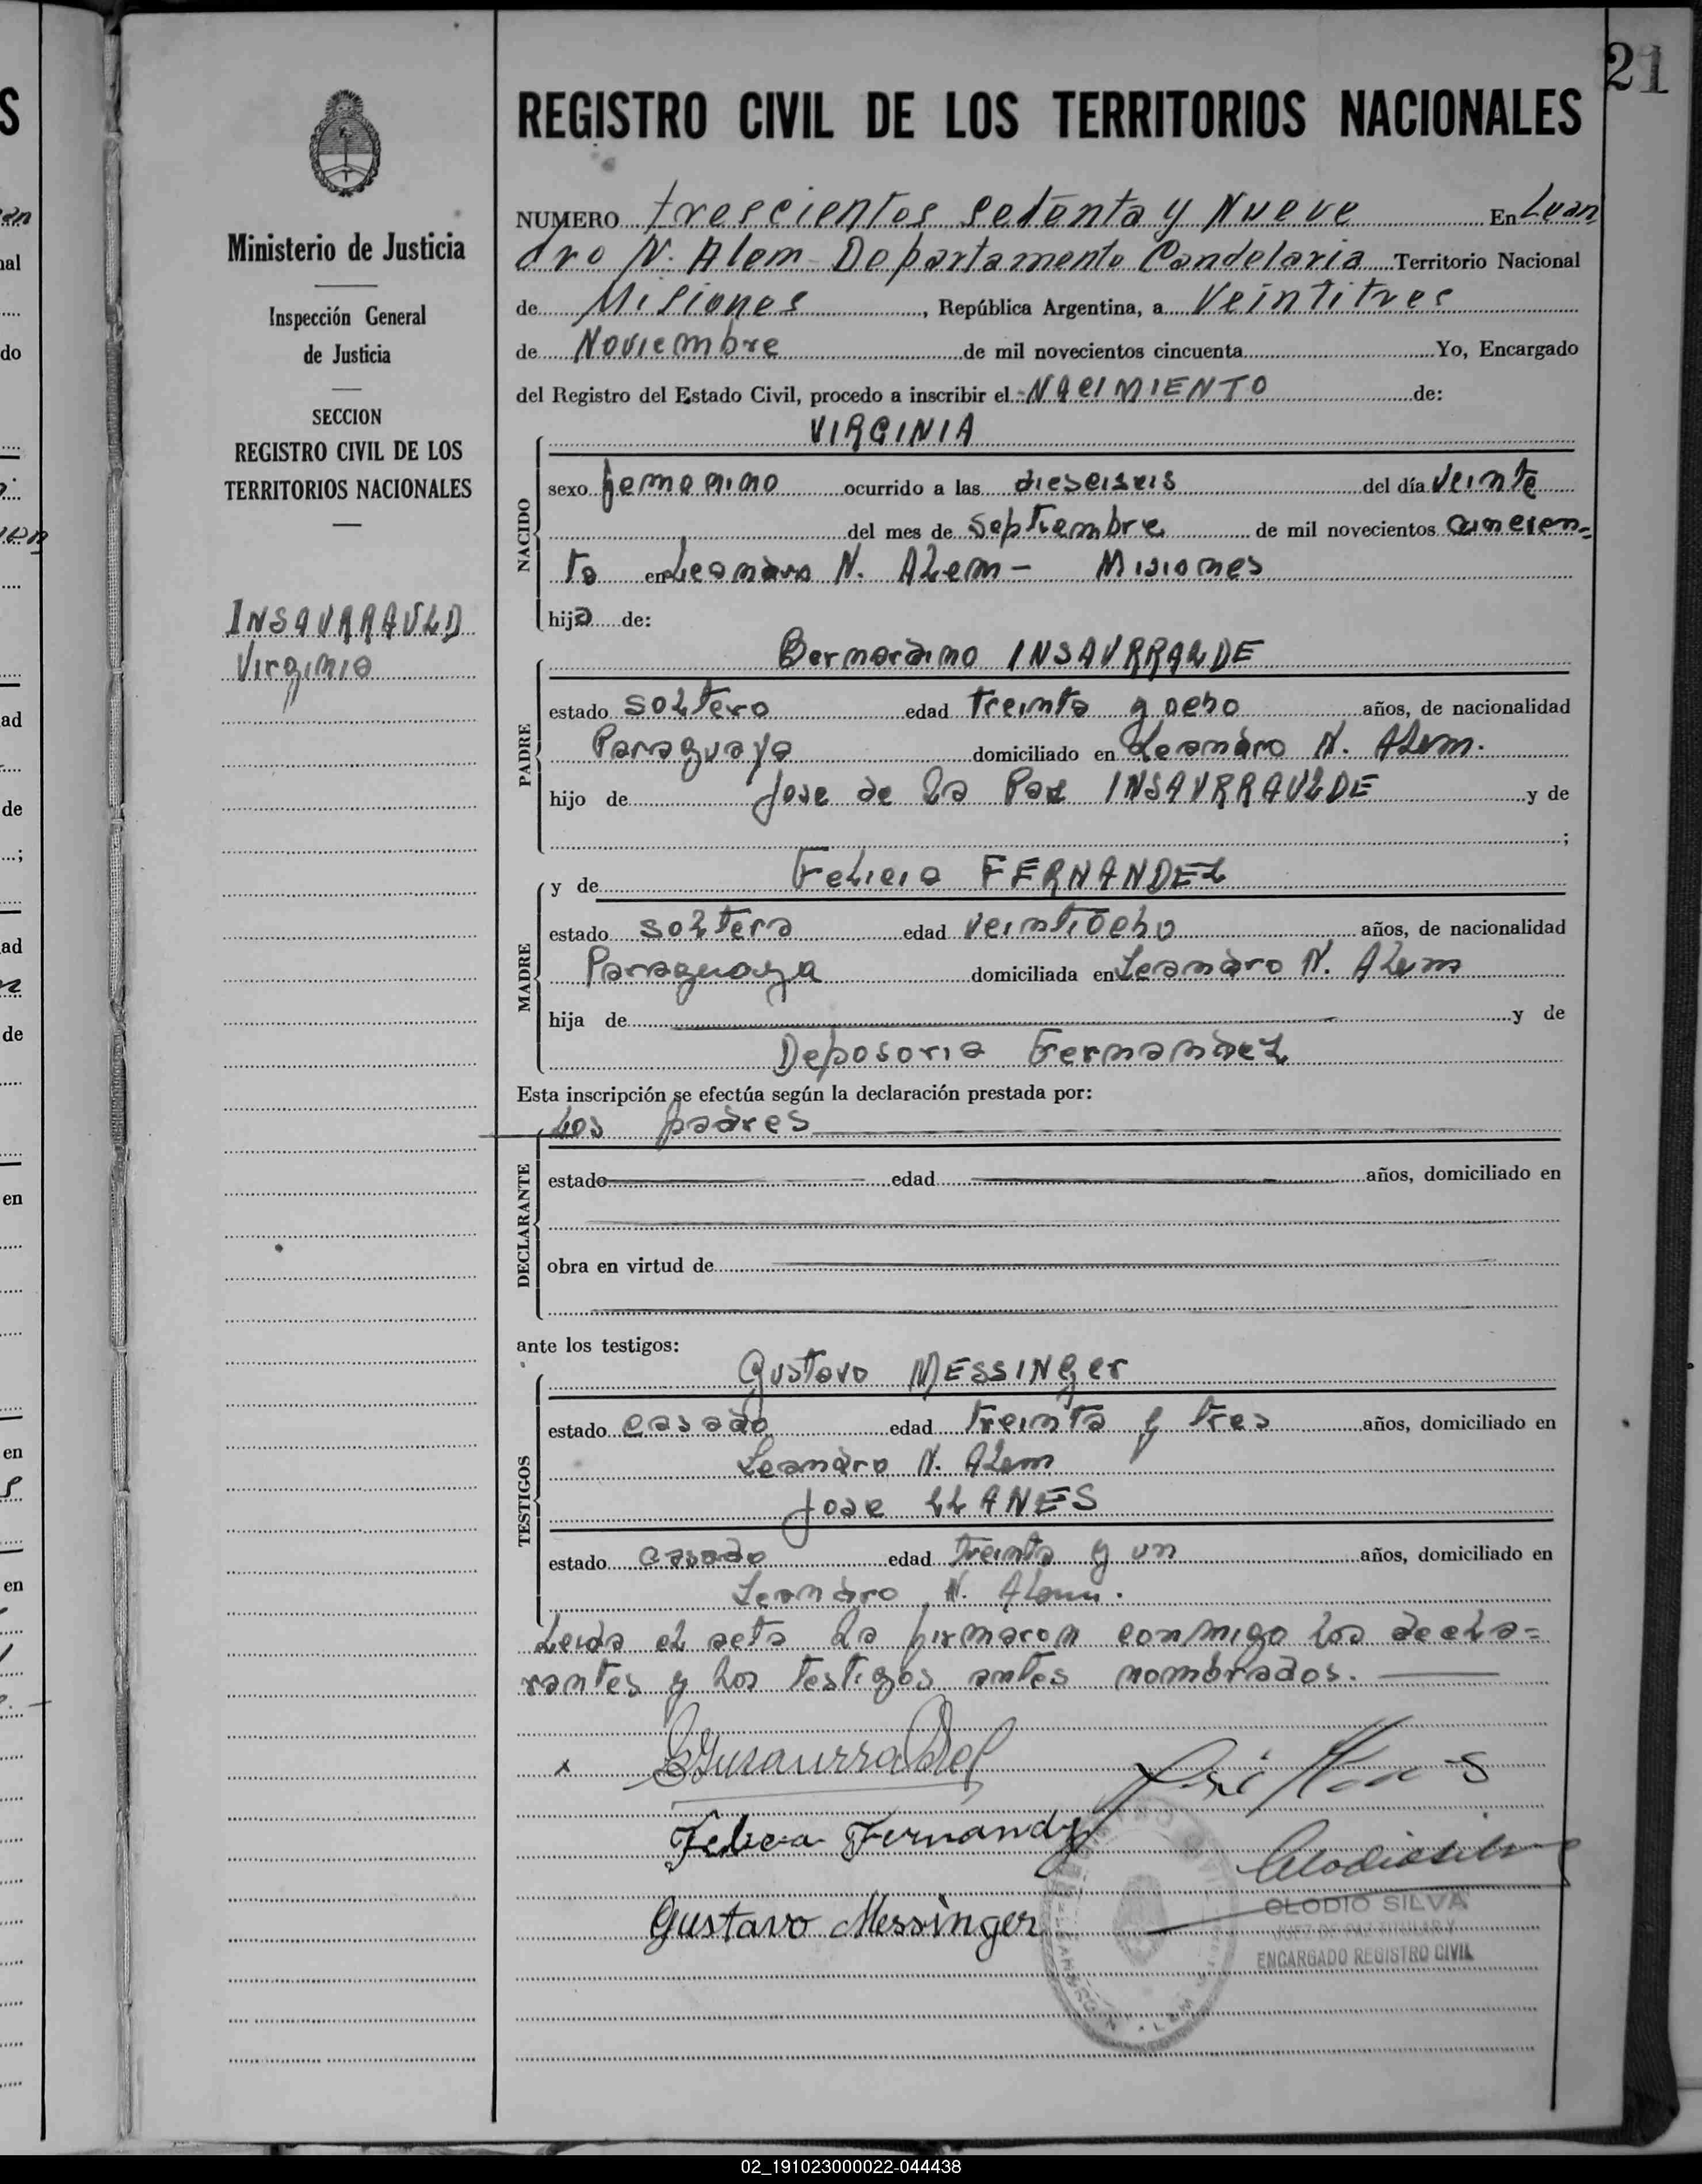 21
REGISTRO CIVIL DE LOS TERRITORIOS NACIONALES
Ministerio de Justicia
Inspección General
de Justicia
SECCION
REGISTRO CIVIL DE LOS
TERRITORIOS NACIONALES
INSAURRAULD
Virginia
NUMERO trescientos setenta y Nueve En Lean
dro N. Alem - Departamento Candelaria Territorio Nacional
de Misiones, República Argentina, a Veintitres
de Noviembre de mil novecientos cincuenta Yo, Encargado
del Registro del Estado Civil, procedo a inscribir el NACIMIENTO de:
NACIDO
VIRGINIA
sexo femenino ocurrido a las dieseiseis del día veinte
del mes de septiembre de mil novecientos cincuen=
ta en Leandro N. Alem - Misiones
hija de:
PADRE
Bernardino INSAURRALDE
estado soltero edad treinta y ocho años, de nacionalidad
Paraguaya domiciliado en Leandro N. Alem.
hijo de Jose de la Paz INSAURRAULDE y de
;
MADRE
y de Felicia FERNANDEZ
estado soltera edad veintiocho años, de nacionalidad
Paraguaya domiciliada en Leandro N. Alem
hija de y de
Deposoria Fernandez
Esta inscripción se efectúa según la declaración prestada por:
los padres
DECLARANTE
estado edad años, domiciliado en
obra en virtud de
ante los testigos:
TESTIGOS
Gustavo MESSINger
estado casado edad treinta y tres años, domiciliado en
Leandro N. Alem
Jose LLANES
estado casado edad treinta y un años, domiciliado en
Leandro N. Alem.
Leida el acta la firmaron conmigo los decla=
rantes y los testigos antes nombrados.
x
Felicia Fernandez
Gustavo Messinger
CLODIO SILVA
JUEZ DE PAZ TITULAR Y
ENCARGADO REGISTRO CIVIL
02_191023000022-044438